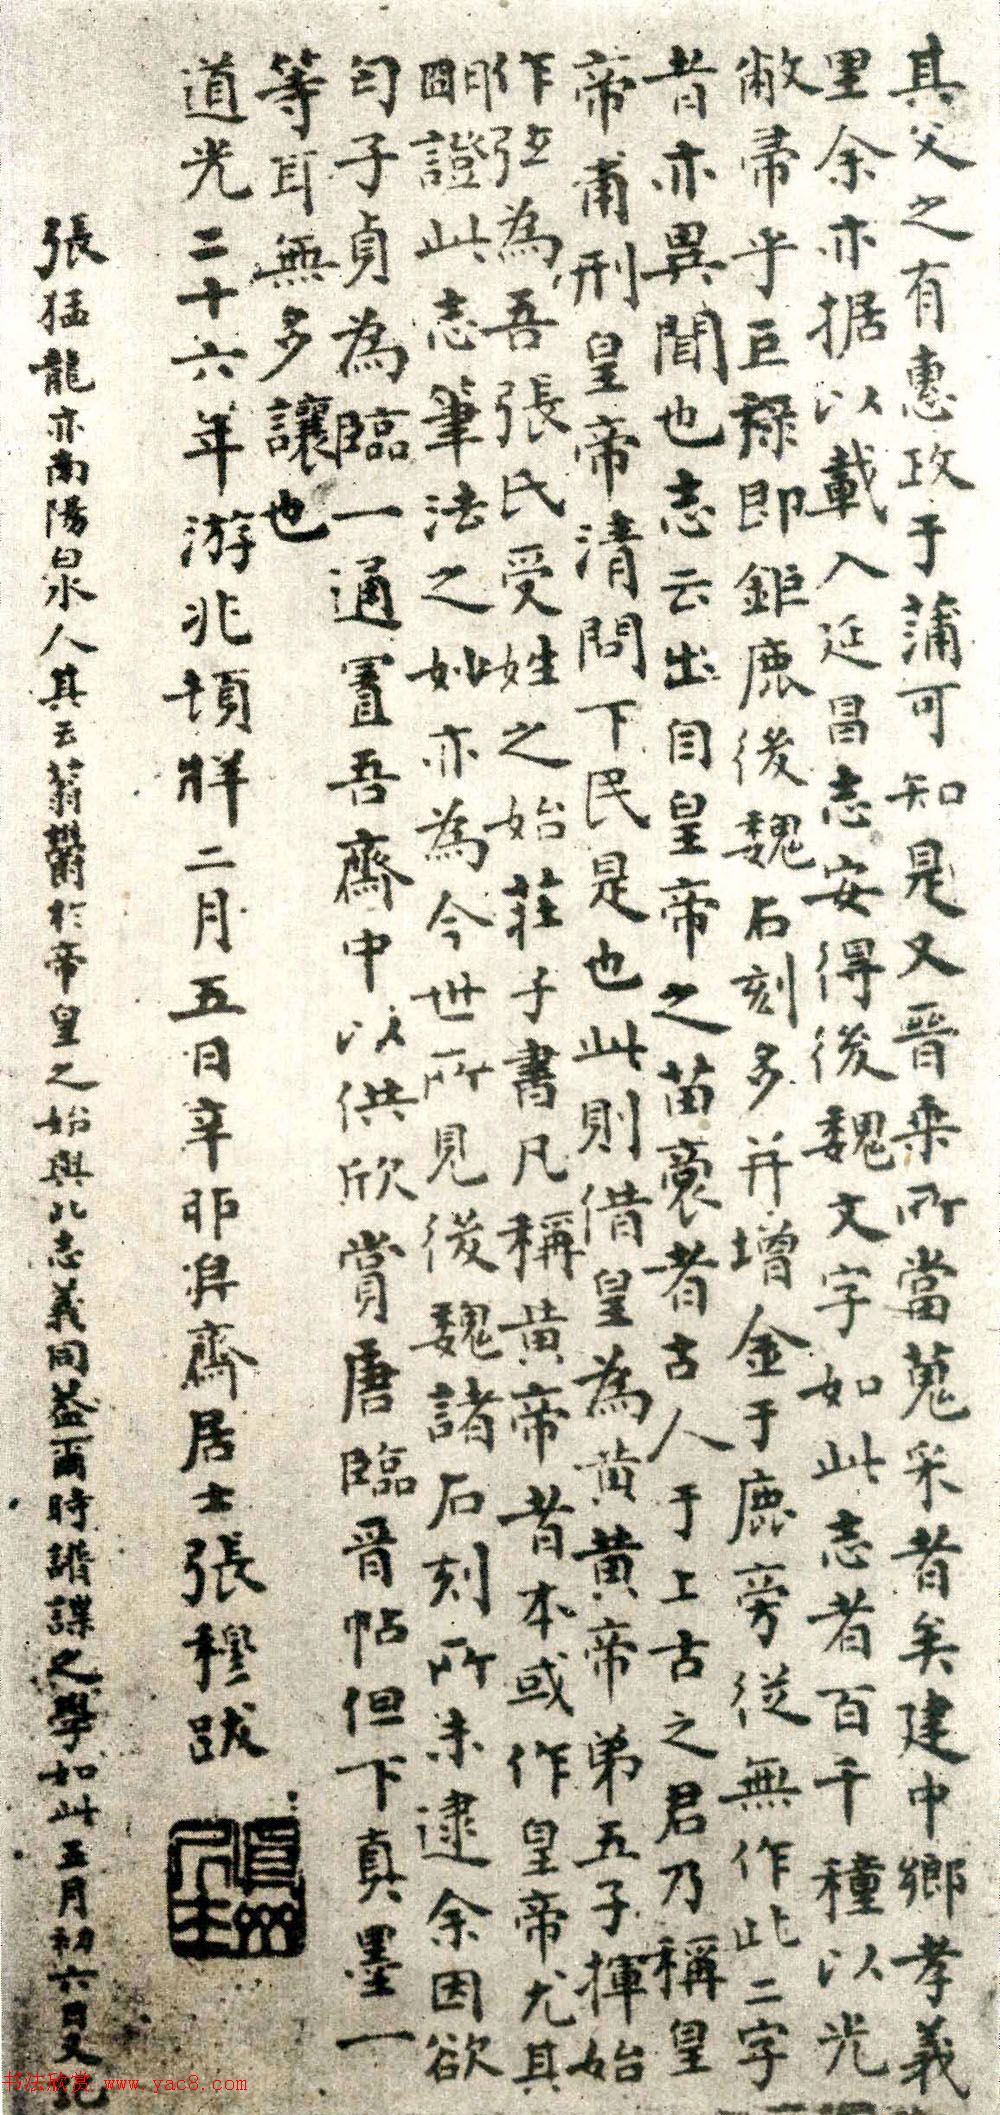 其父之有惠政于蒲可知是又晉乘所當蒐采者矣建中鄉孝義
里余亦据以載入延昌志安得後魏文字如此志者百千種以光
敝帚乎巨祿即鉅鹿後魏石刻多并增金于鹿旁從無作此二字
者亦異聞也志云出自皇帝之苗裔者古人于上古之君乃稱皇
帝甫刑皇帝清問下民是也此則借皇為黃黃帝弟五子揮始
作弦為吾張氏受姓之始莊子書凡稱黃帝者本或作皇帝尤其
明證此志筆法之妙亦為今世所見後魏諸石刻所未逮余因欲
匄子貞為臨一通置吾齋中以供欣賞唐臨晉帖但下真墨一
等耳無多讓也
道光二十六年游兆頓牂二月五日辛卯𦣞齋居士張穆跋
張猛龍亦南陽白水人其云蓊鬱於帝皇之始與此志義同蓋爾時譜諜之學如此五月初六日又記
书法欣赏 www.yac8.com